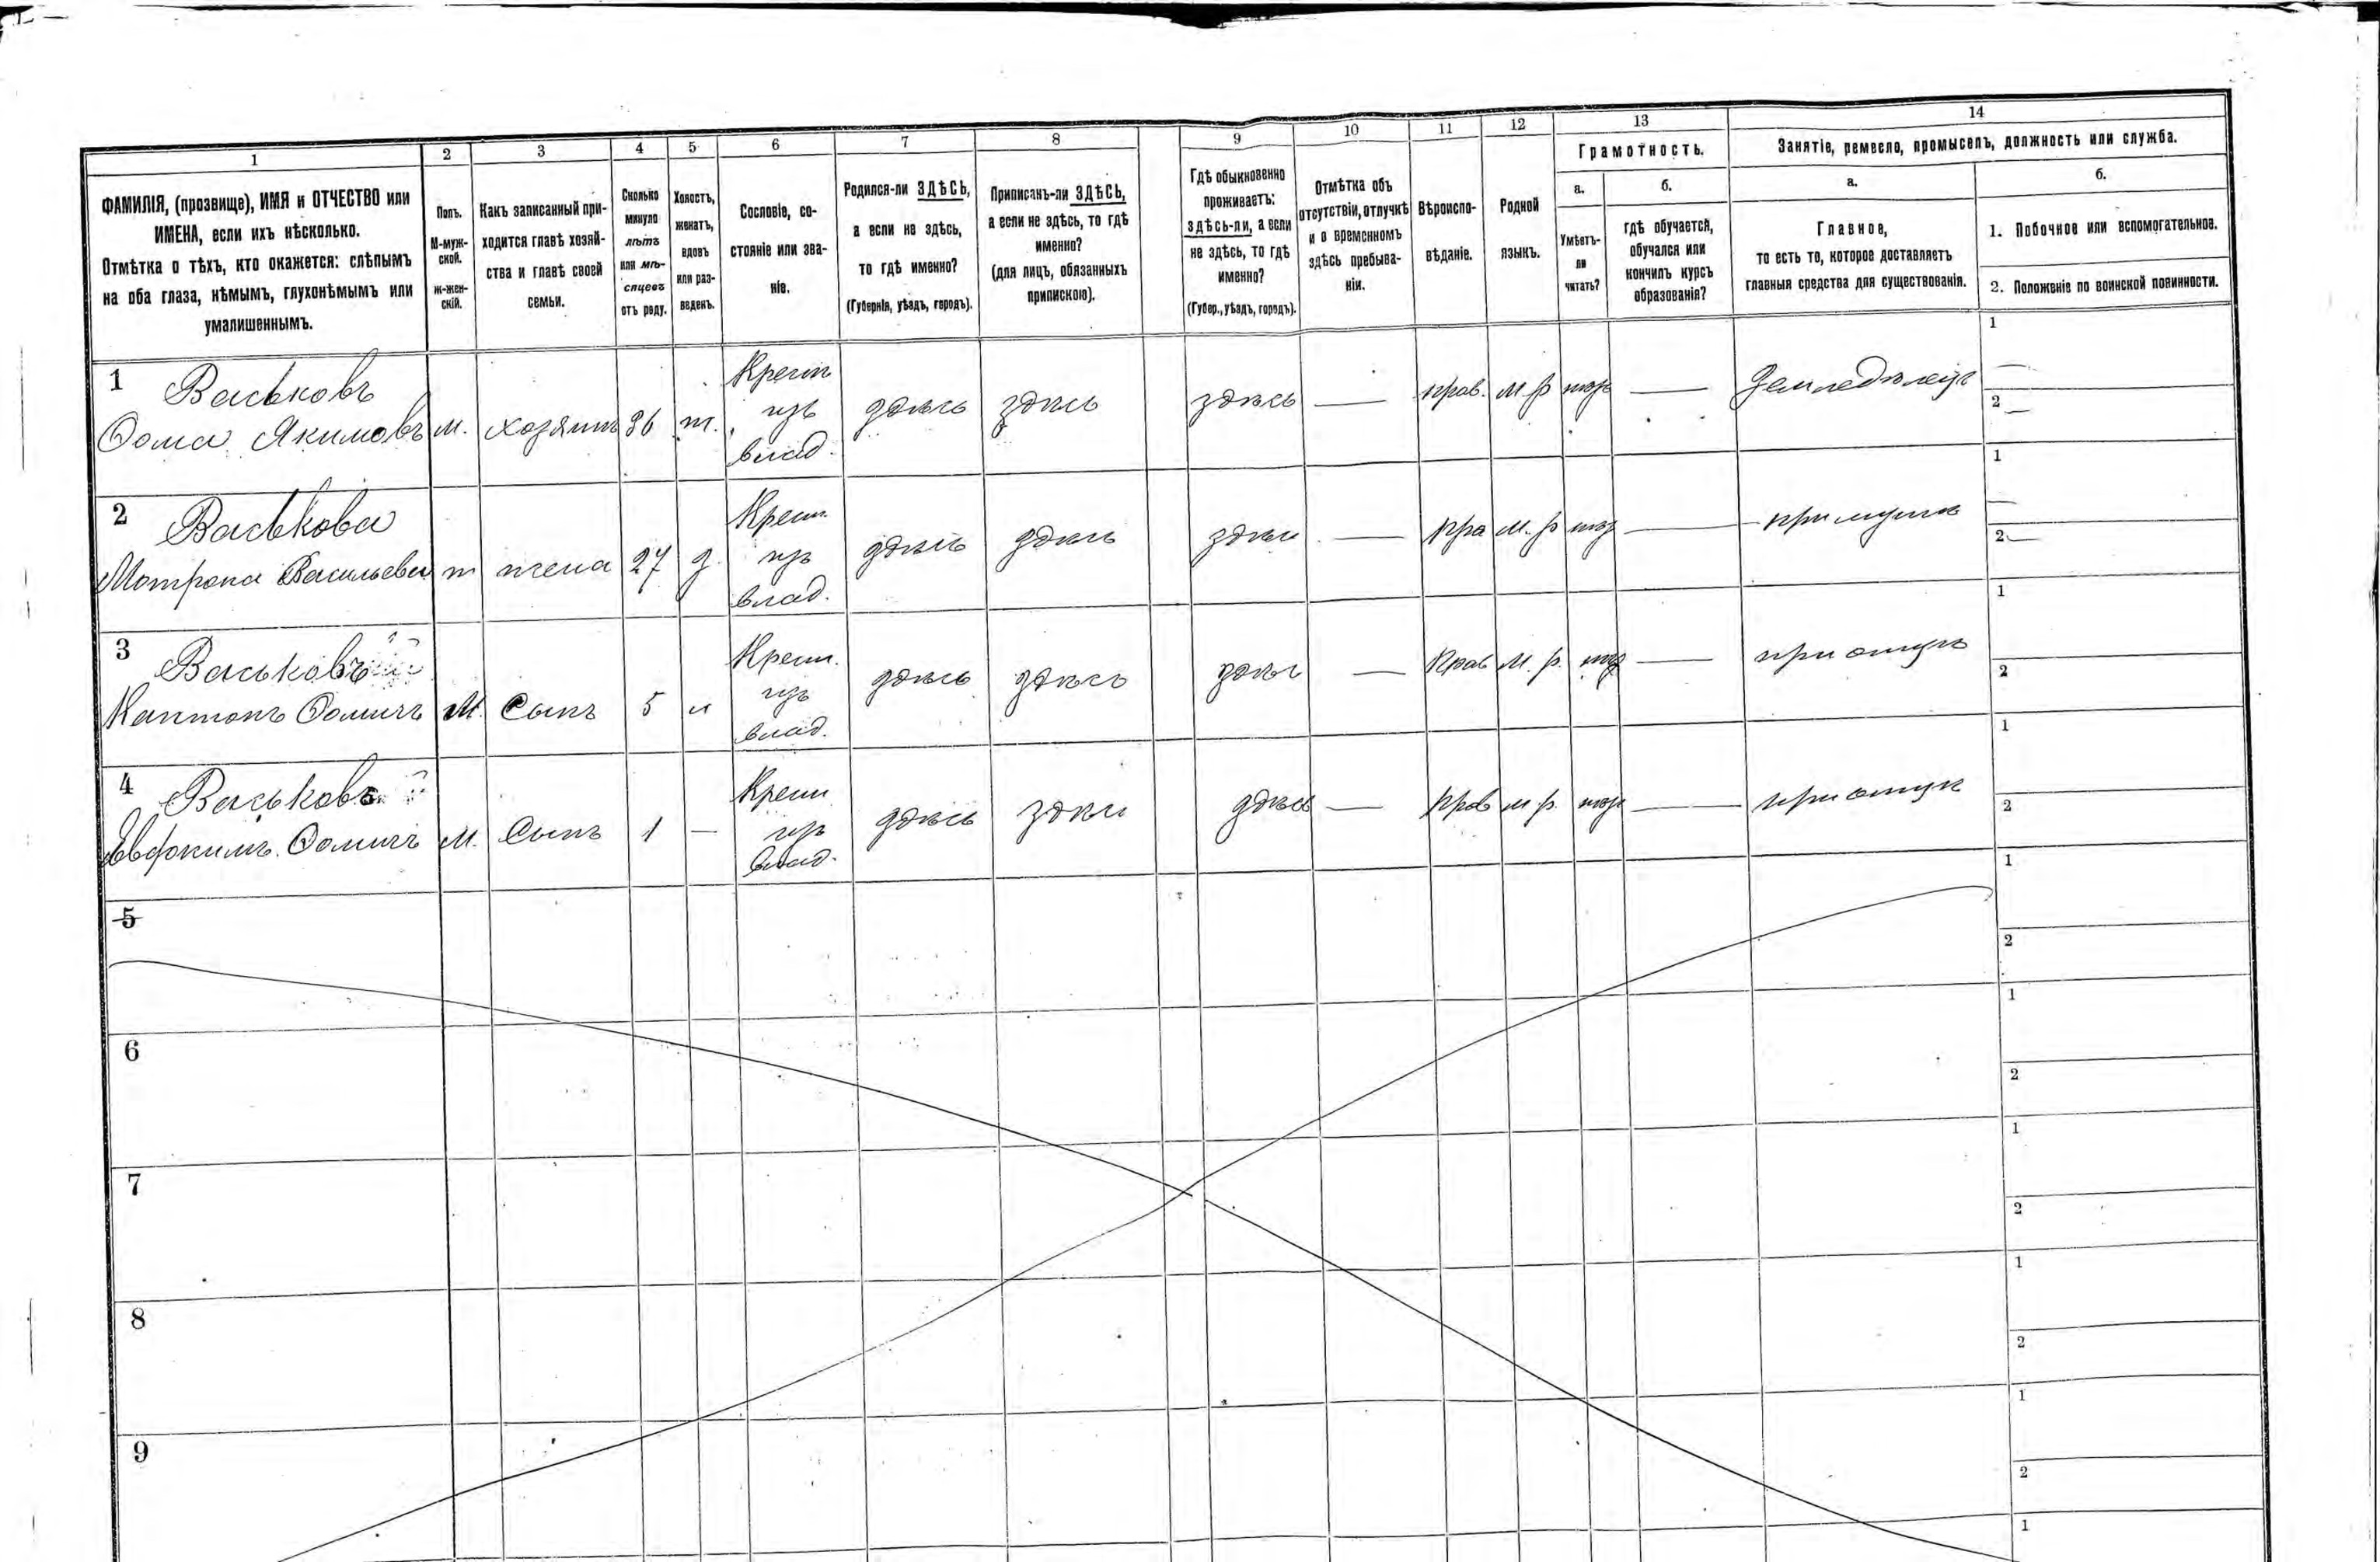 1 2 3 4 5 6 7 8 9 10 11 12 13 14
ФАМИЛІЯ, (прозвище), ИМЯ и ОТЧЕСТВО или
ИМЕНА, если ихъ нѣсколько.
Отмѣтка о тѣхъ, кто окажется: слѣпымъ
на оба глаза, нѣмымъ, глухонѣмымъ или
умалишеннымъ.
Полъ.
М-муж-
ской.
Ж-жен-
скій.
Какъ записанный при-
ходится главѣ хозяй-
ства и главѣ своей
семьи.
Сколько
минуло
лѣтъ
или мѣ-
сяцевъ
отъ роду.
Холостъ,
женатъ,
вдовъ
или раз-
веденъ.
Сословіе, со-
стояніе или зва-
ніе.
Родился-ли ЗДѢСЬ,
а если не здѣсь,
то гдѣ именно?
(Губернія, уѣздъ, городъ).
Приписанъ-ли ЗДѢСЬ,
а если не здѣсь, то гдѣ
именно?
(для лицъ, обязанныхъ
припискою).
Гдѣ обыкновенно
проживаетъ:
здѣсь-ли, а если
не здѣсь, то гдѣ
именно?
(Губер., уѣздъ, городъ).
Отмѣтка объ
отсутствіи, отлучкѣ
и о временномъ
здѣсь пребыва-
ніи.
Вѣроиспо-
вѣданіе.
Родной
языкъ.
Грамотность.
а.
Умѣетъ-
ли
читать?
б.
гдѣ обучается,
обучался или
кончилъ курсъ
образованія?
Занятіе, ремесло, промыселъ, должность или служба.
а.
Главное,
то есть то, которое доставляетъ
главныя средства для существованія.
б.
1. Побочное или вспомогательное.
2. Положеніе по воинской повинности.
1 Васьковъ
Ѳома Якимовъ м. хозяинъ 36 ж. Крест изъ влад. здѣсь здѣсь здѣсь — прав. м р — земледѣлец
1 —
2 —
2 Васькова
Мотрона Васильева ж жена 27 з. Крест. изъ влад. здѣсь здѣсь здѣсь — пра м. р — при мужѣ
1 —
2 —
3 Васьковъ
М. Сынъ 5 Крест. изъ влад. здѣсь здѣсь здѣсь — Прав м. р. — при отцѣ
1
2
4 Васьковъ
Евфокимъ Ѳомичъ М. Сынъ 1 — Крест изъ влад. здѣсь здѣсь здѣсь — прав м р. — при отцѣ
1
2
5
1
2
6
1
2
7
1
2
8
1
2
9
1
2
1